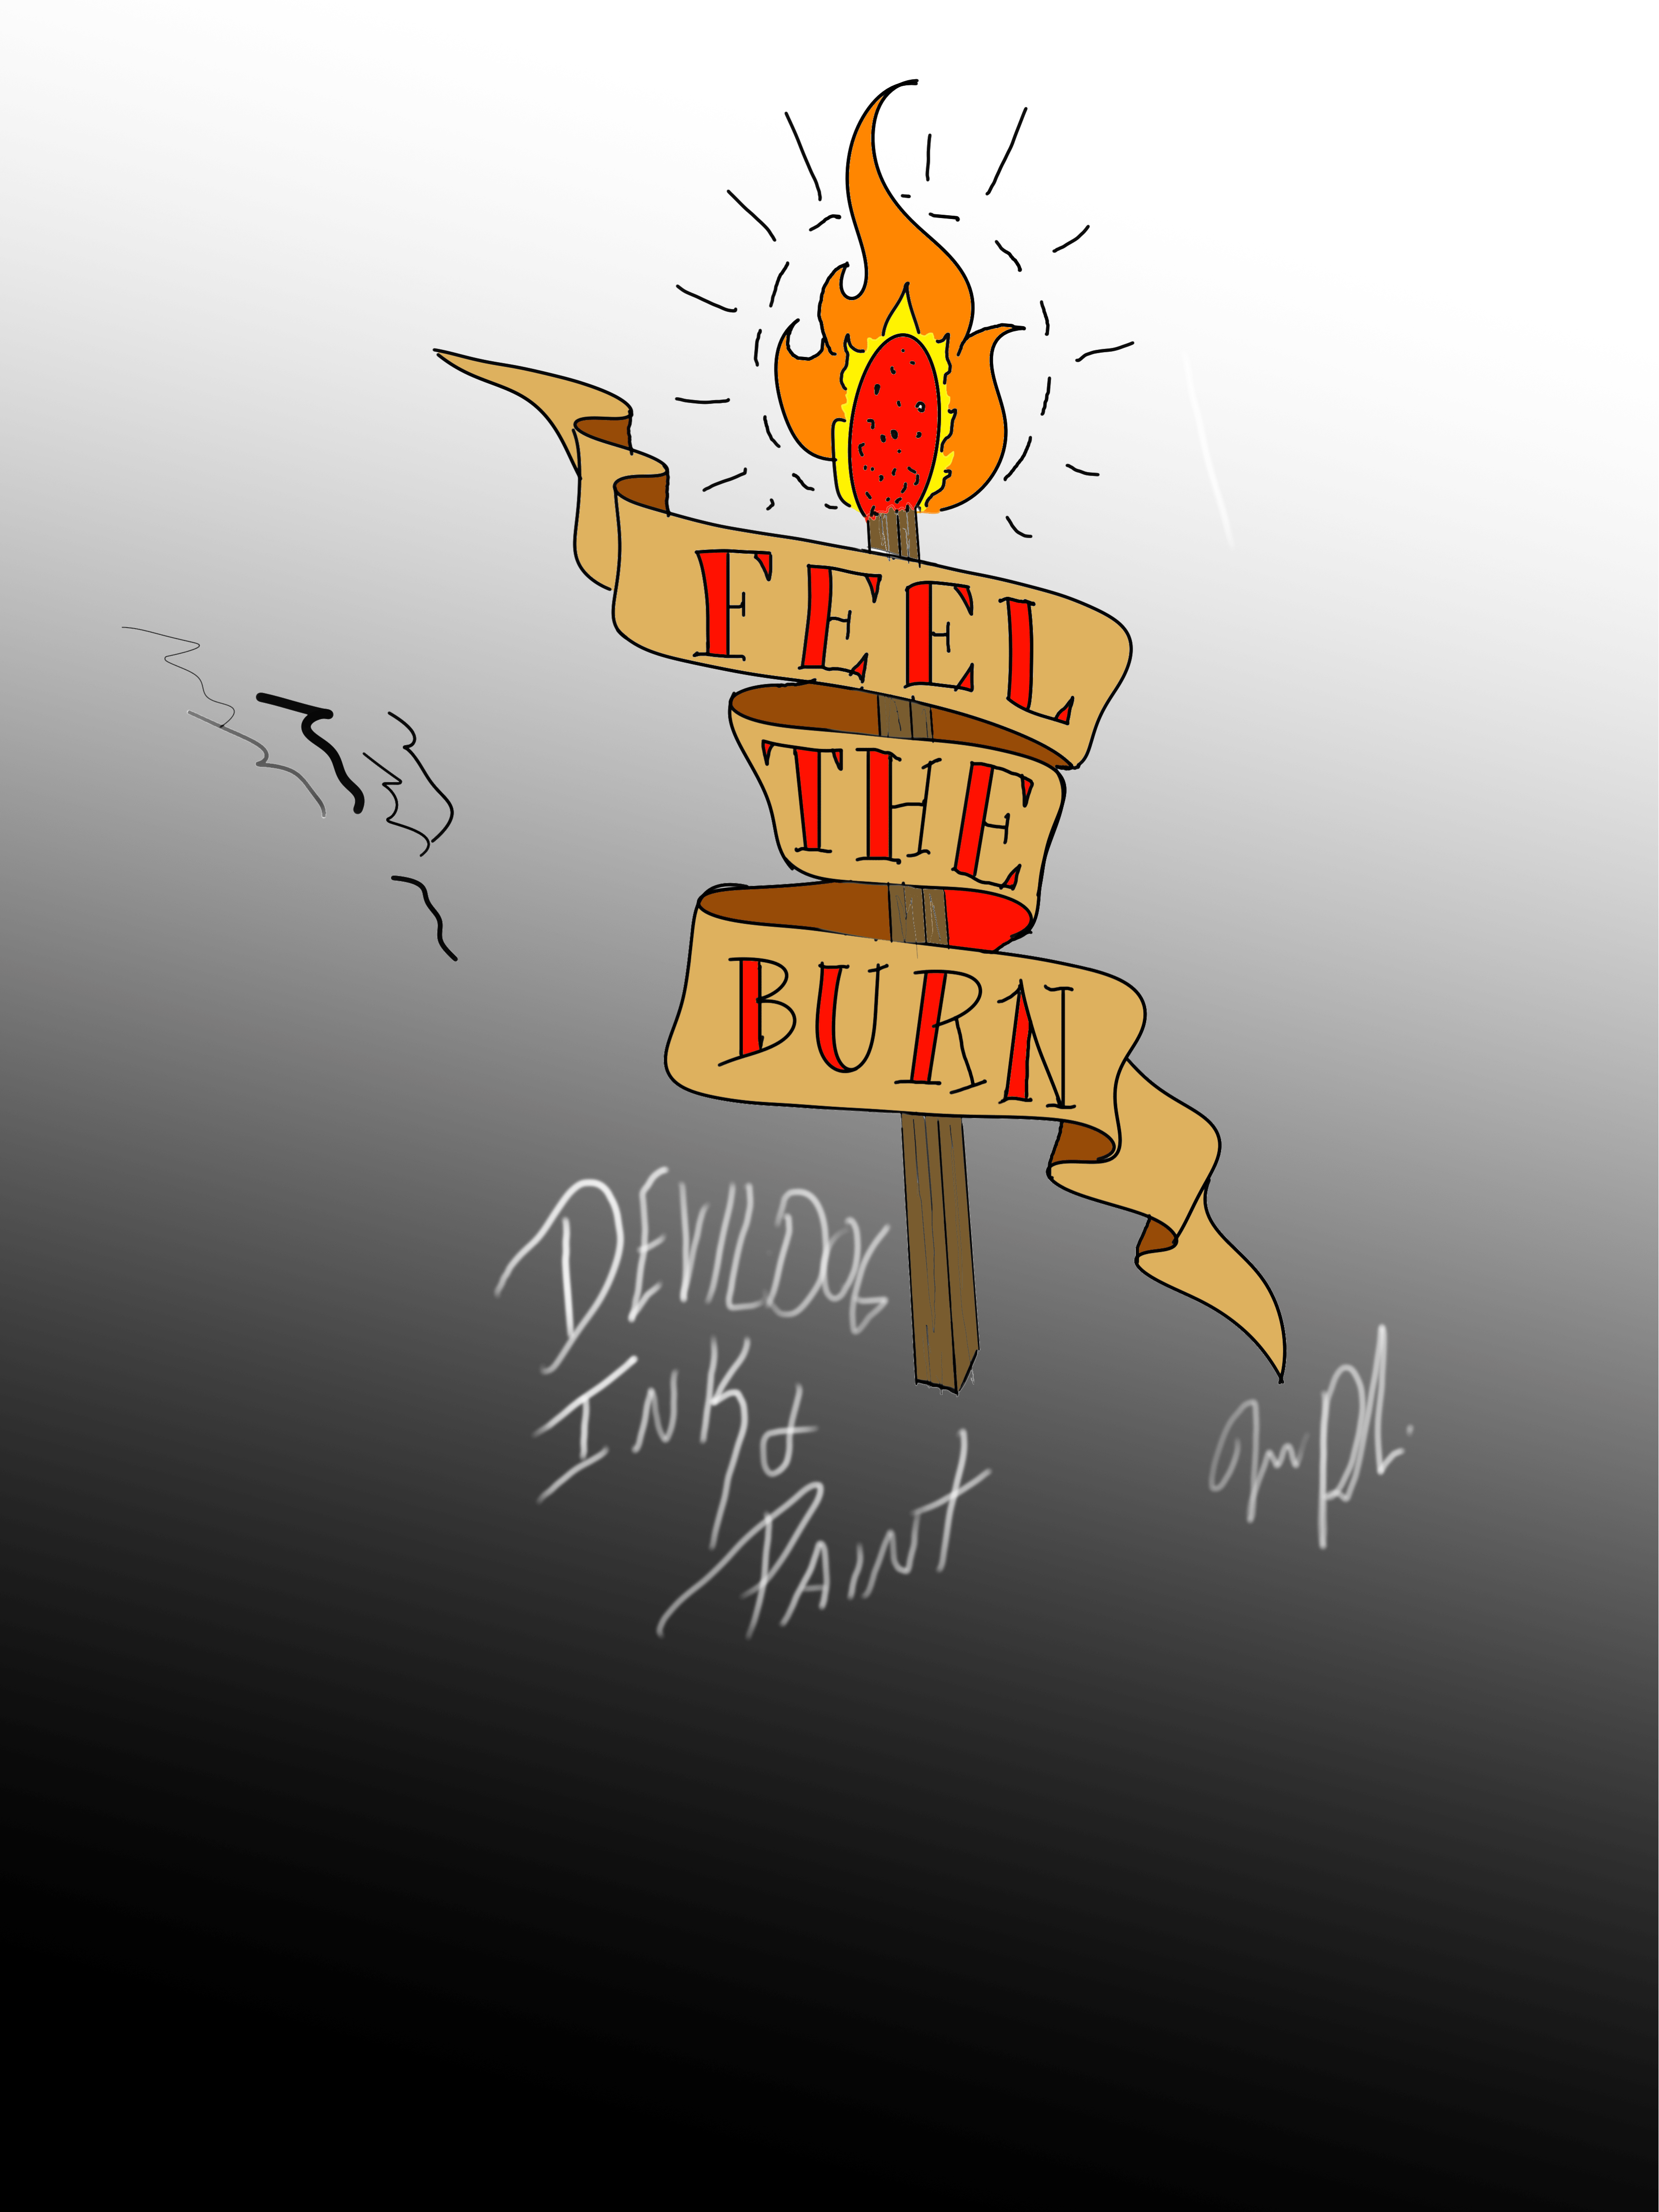 FEEL
THE
BURN
DEVILDOG
INK &
PAINT